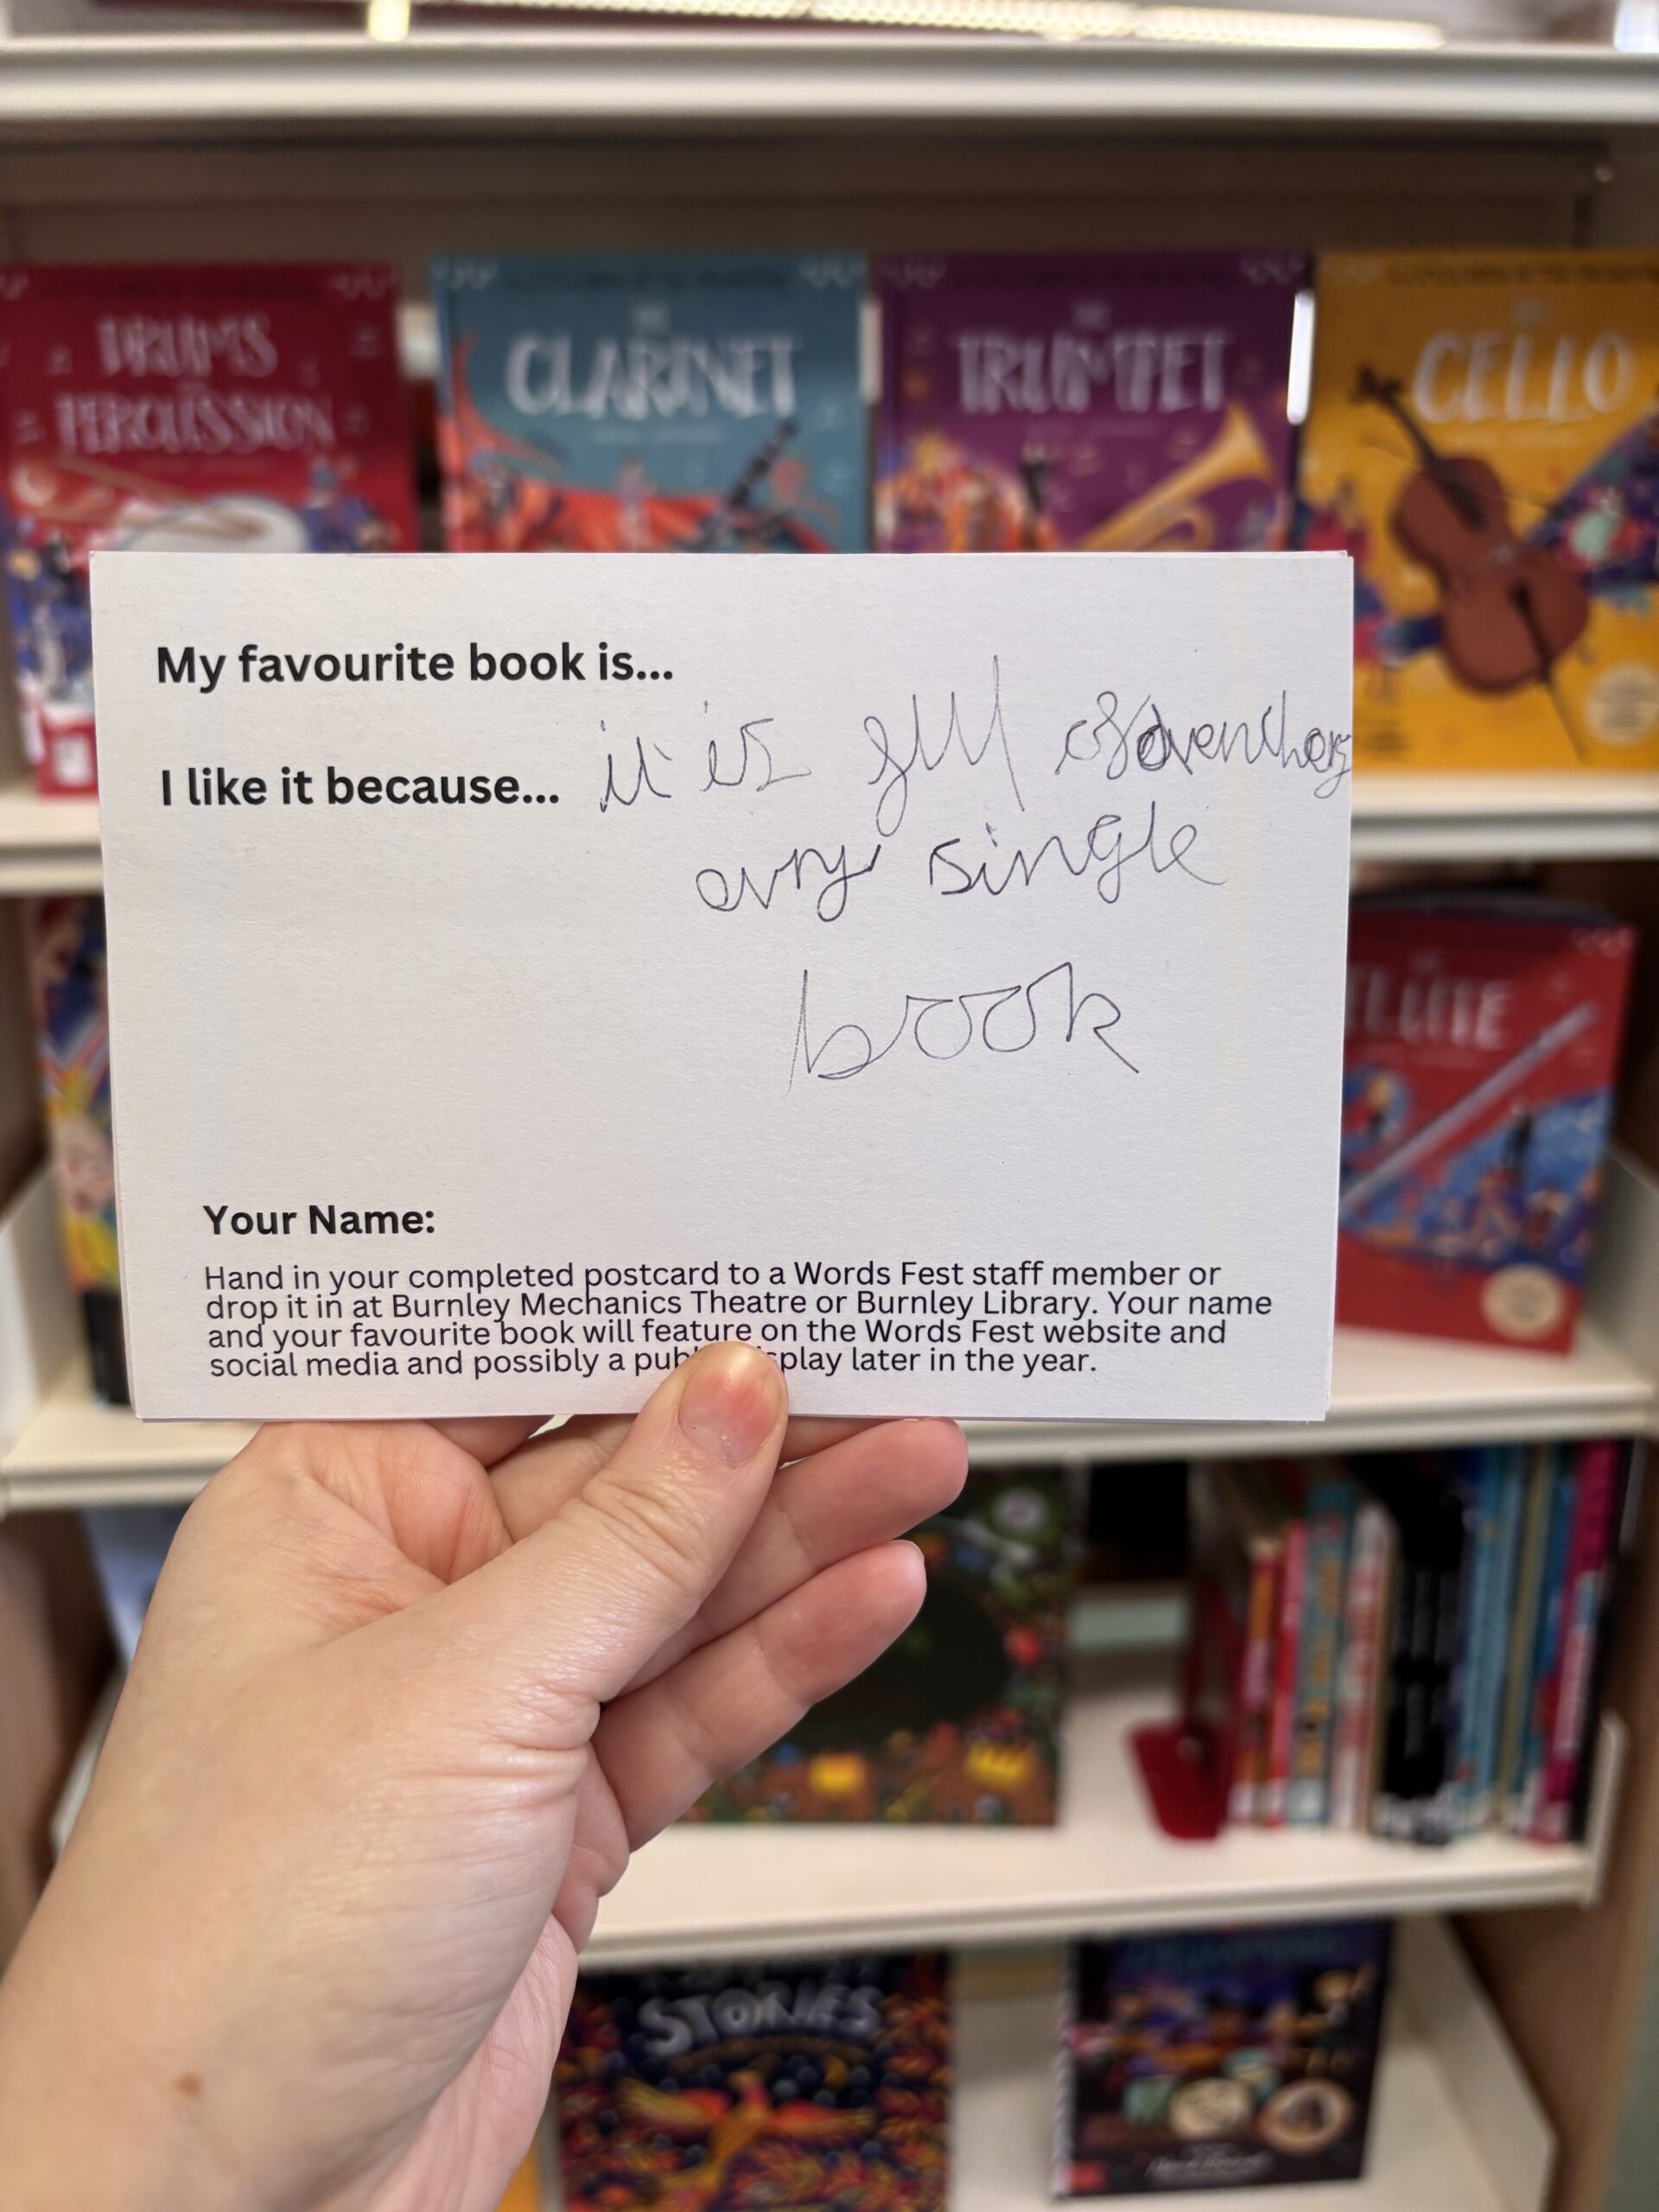 DRUMS
PERCUSSION
THE
CLARINET
THE
TRUMPET
THE
CELLO
My favourite book is...
I like it because... it is full of
avry single
book
FLUTE
Your Name:
Hand in your completed postcard to a Words Fest staff member or
drop it in at Burnley Mechanics Theatre or Burnley Library. Your name
and your favourite book will feature on the Words Fest website and
social media and possibly a play later in the year.
STORIES